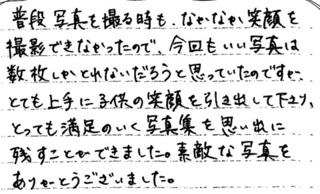 普段写真を撮る時も、なかなか笑顔を
撮影できなかったので、今回もいい写真は
数枚しかとれないだろうと思っていたのですが、
とても上手に子供の笑顔を引き出して下さり、
とっても満足のいく写真集を思い出に
残すことができました。素敵な写真を
ありがとうございました。